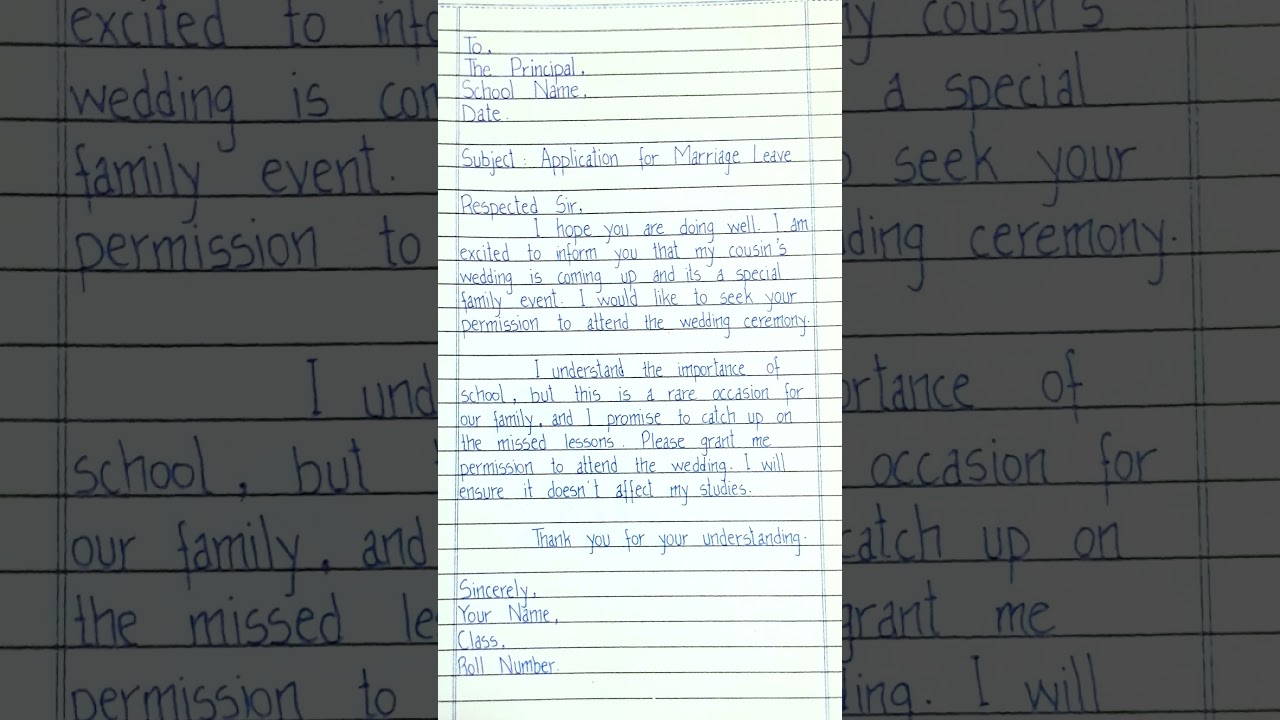 To,
The Principal,
School Name,
Date.
Subject: Application for Marriage Leave
Respected Sir,
I hope you are doing well. I am
excited to inform you that my cousin's
wedding is coming up and its a special
family event. I would like to seek your
permission to attend the wedding ceremony.
I understand the importance of
school, but this is a rare occasion for
our family, and I promise to catch up on
the missed lessons. Please grant me
permission to attend the wedding. I will
ensure it doesn't affect my studies.
Thank you for your understanding.
Sincerely,
Your Name,
Class,
Roll Number.